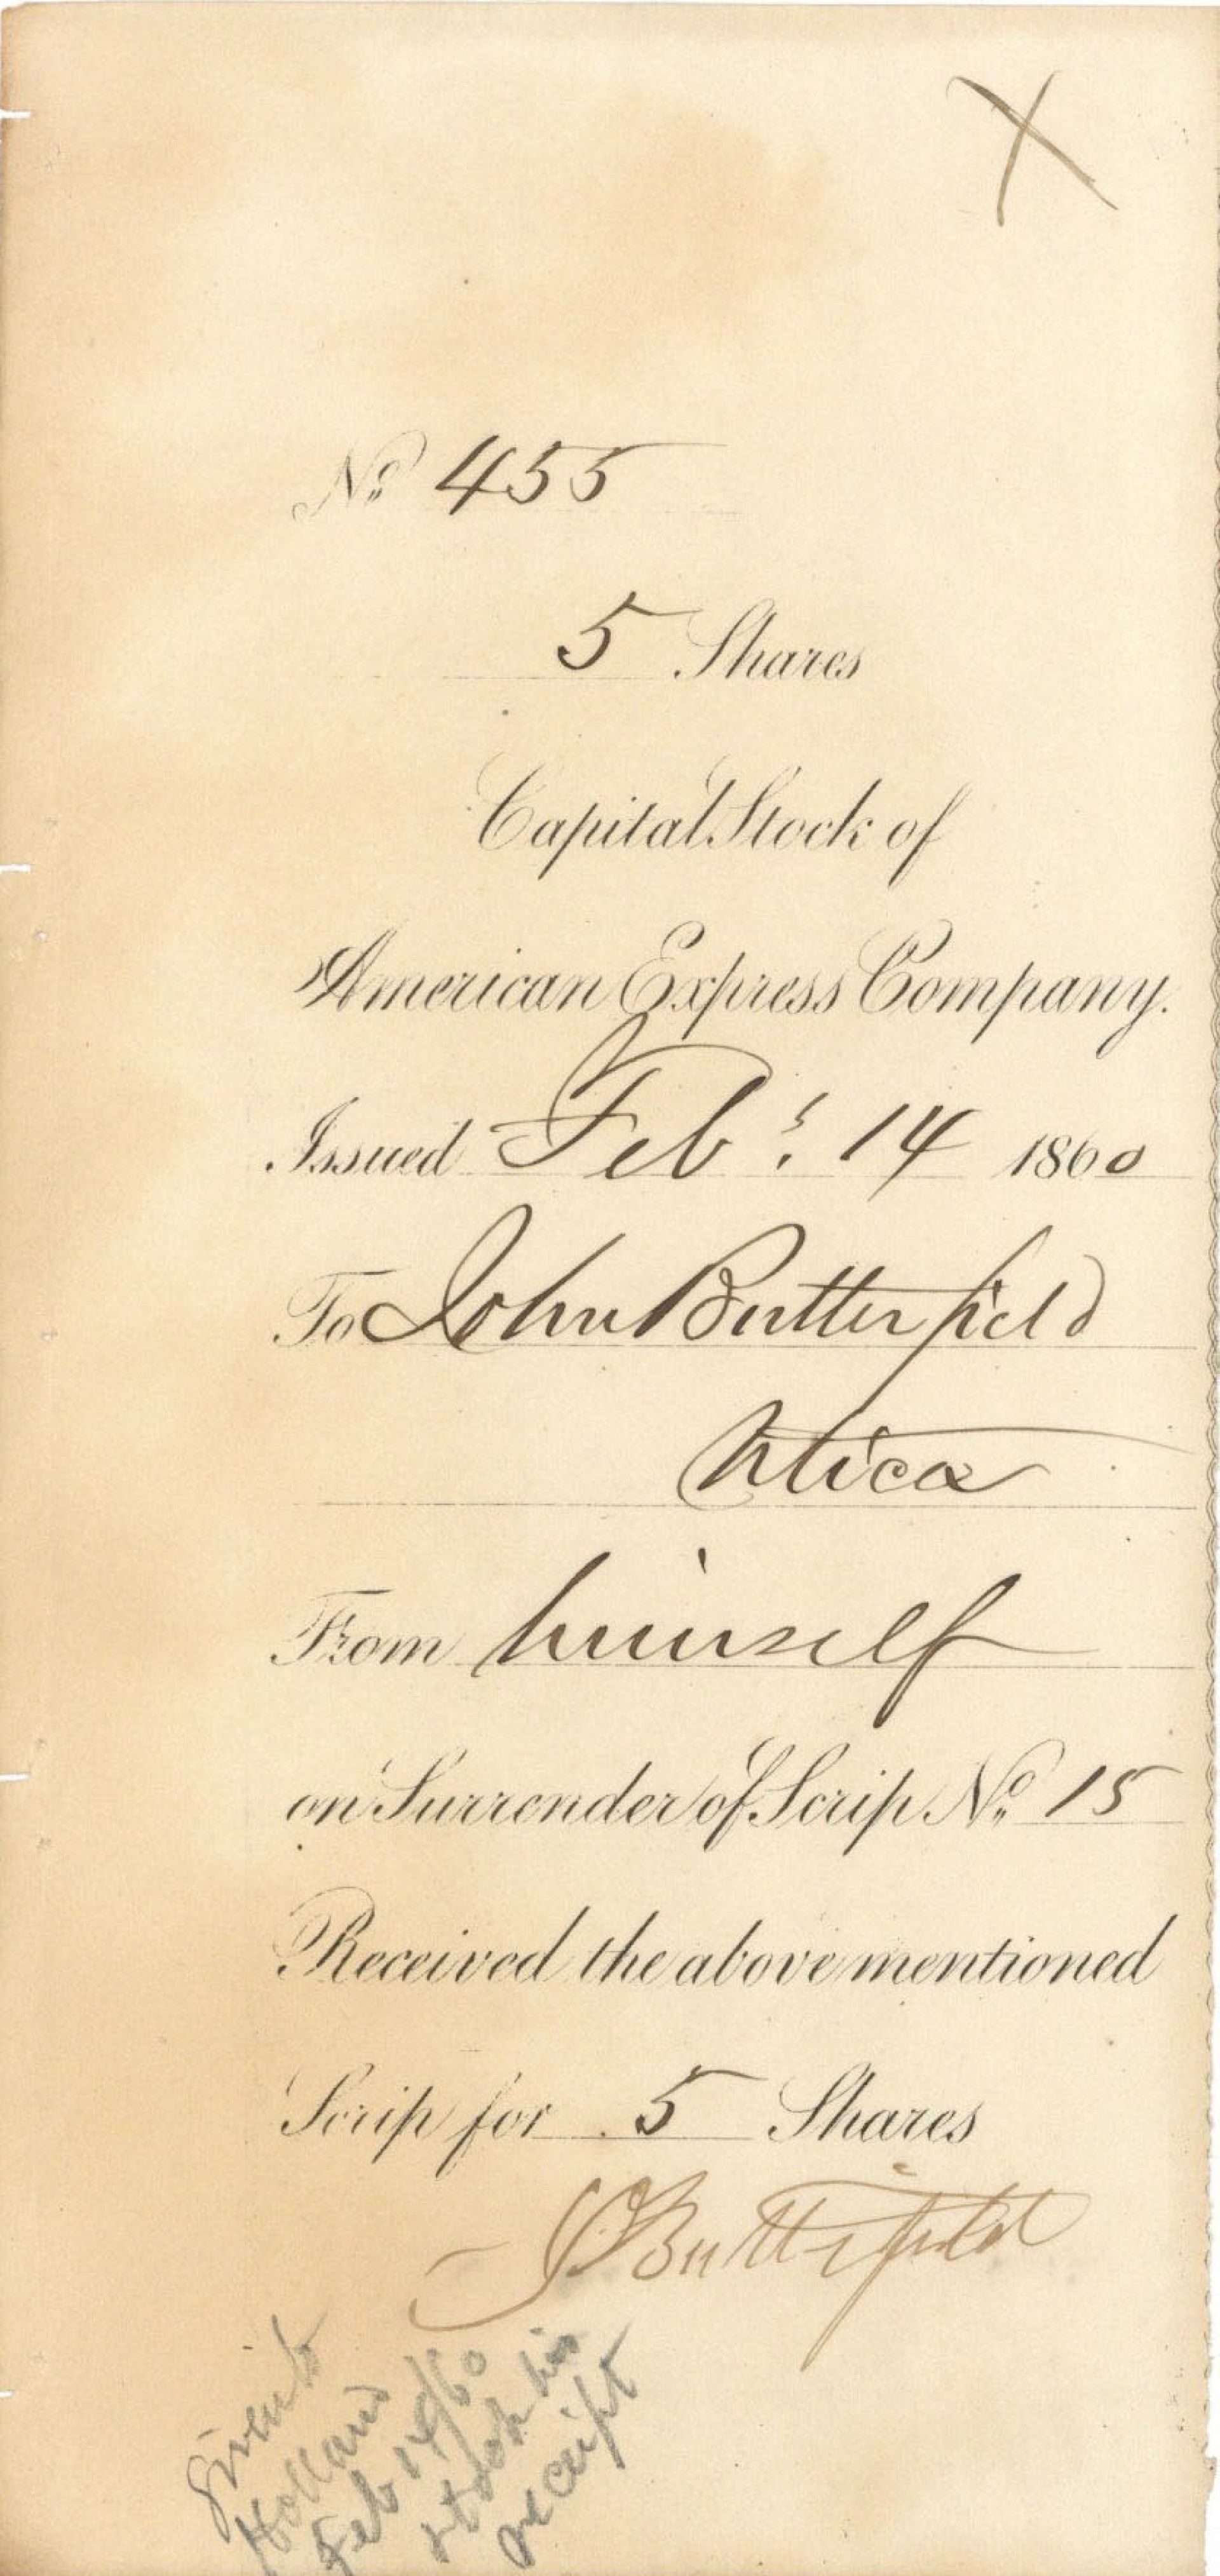 X
No. 455
5 Shares
Capital Stock of
American Express Company.
Issued Feby. 14 1860
To John Butterfield
Utica
From himself
on Surrender of Scrip No. 15
Received the above mentioned
Scrip for 5 Shares
J Butterfield
Given to
Holland
Feb 14/60
& took his
receipt